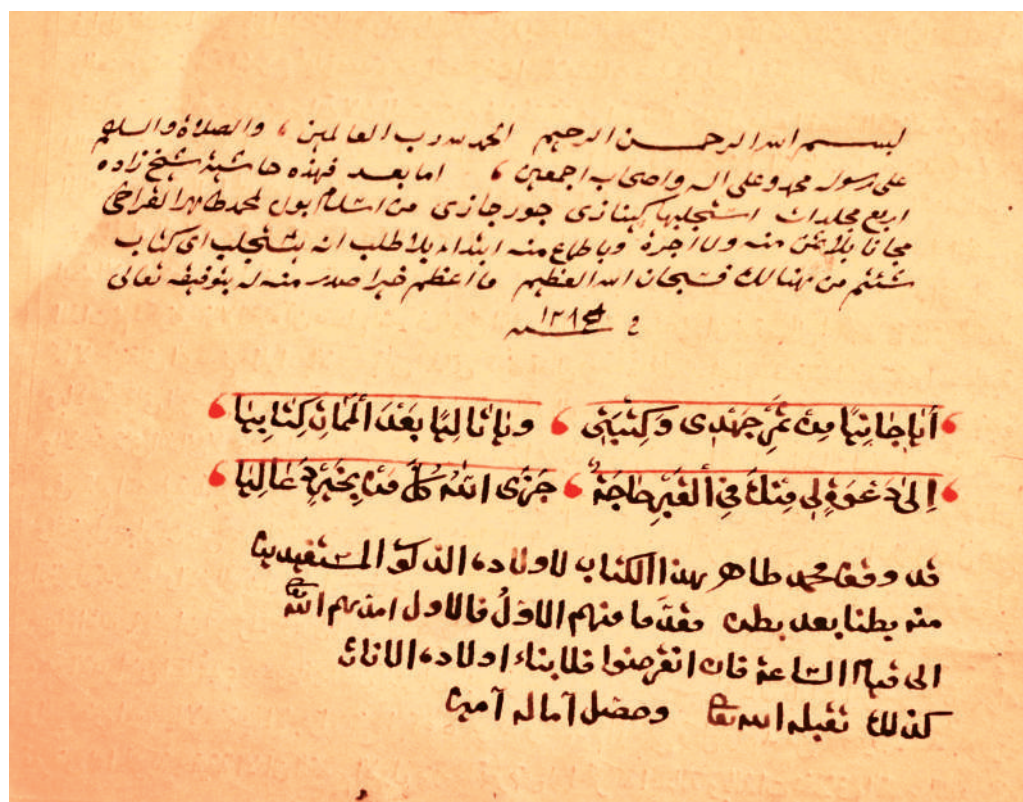 بسم الله الرحمن الرحيم الحمد لله رب العالمين ، والصلاة والسلام
على رسوله محمد وعلى اله واصحابه اجمعين ، اما بعد فهذه حاشية شيخ زاده
اربع مجلدات استجلبها كينازى جورجازى من استانبول لمحمد طاهر القراخى
مجانا بلا ثمن منه ولا اجرة وباطلاع منه ابتداء بلا طلب انه يستجلب اى كتاب
شئتم من هنالك فسبحان الله العظيم ما اعظم خيرا صدر منه له بتوفيقه تعالى
فى سنة
أيا جانيا من ثمر جهدى وكتبتى ، ويا تاليا بعد الممات كتابيا
إلى دعوة لى منك فى القبر حاجة ، جزى الله كل من بخير دعا ليا
قد وقف محمد طاهر هذا الكتاب لاولاده الذكور المستفيدين
منه بطنا بعد بطن مقدما منهم الاول فالاول امدهم الله
الى قيام الساعة فان انقرضوا فلابناء اولاده الاناث
كذلك تقبله الله تعالى وحصل آماله آمين